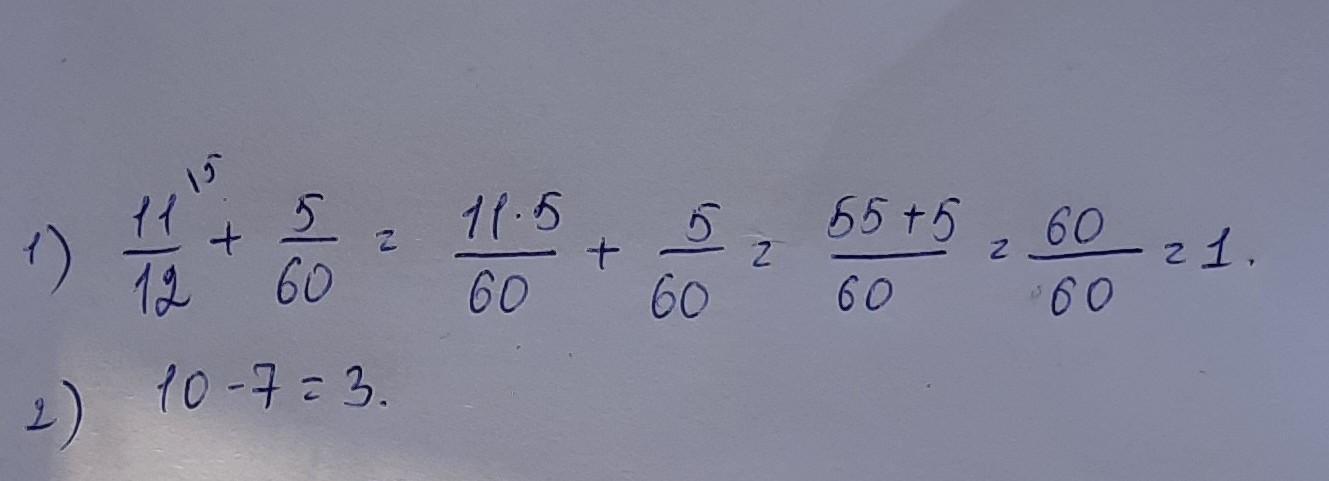 1) 11/12 \5 + 5/60 = 11·5/60 + 5/60 = 55+5/60 = 60/60 = 1.
2) 10-7=3.